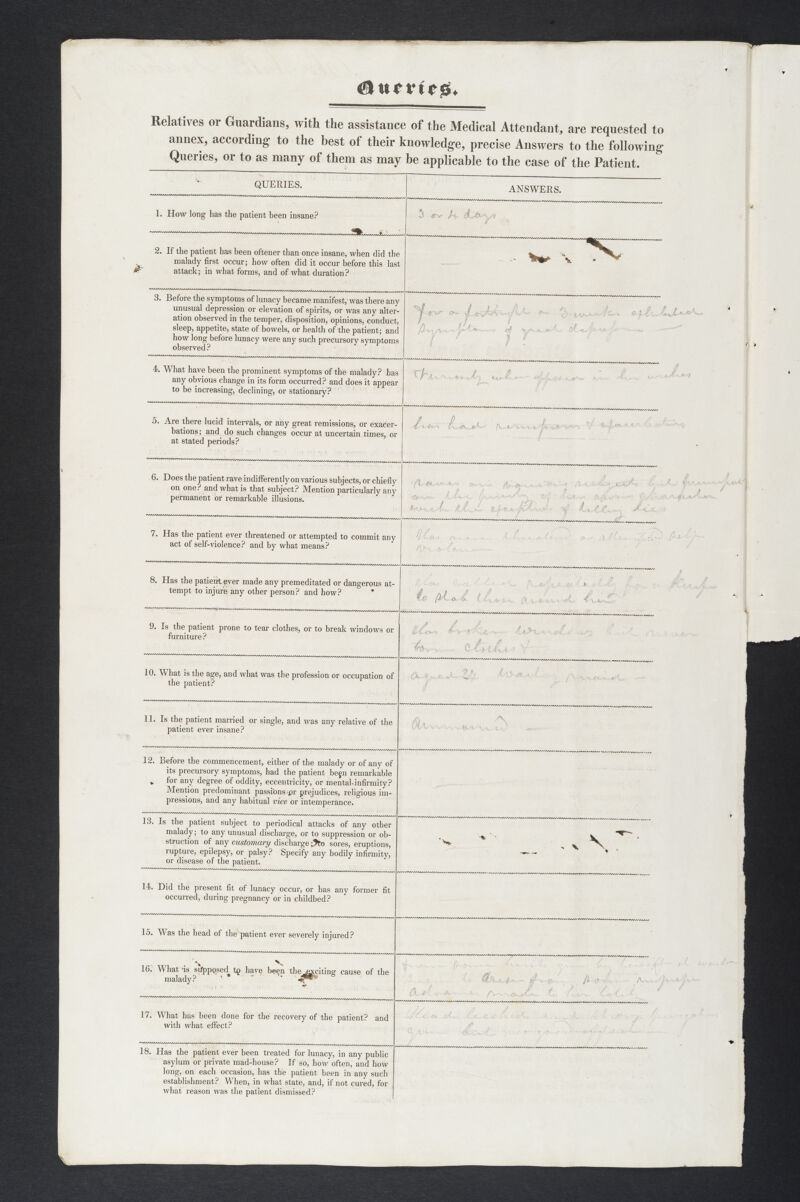 Queries.
Relatives or Guardians, with the assistance of the Medical Attendant, are requested to
annex, according to the best of their knowledge, precise Answers to the following
Queries, or to as many of them as may be applicable to the case of the Patient.
QUERIES.
ANSWERS.
1. How long has the patient been insane?
3 or 4 days
2. If the patient has been oftener than once insane, when did the
malady first occur; how often did it occur before this last
attack; in what forms, and of what duration?
3. Before the symptoms of lunacy became manifest, was there any
unusual depression or elevation of spirits, or was any alter-
ation observed in the temper, disposition, opinions, conduct,
sleep, appetite, state of bowels, or health of the patient; and
how long before lunacy were any such precursory symptoms
observed?
For a fortnight or 3 weeks exhibited
symptoms of great depression
4. What have been the prominent symptoms of the malady? has
any obvious change in its form occurred? and does it appear
to be increasing, declining, or stationary?
when opposed in her wishes
5. Are there lucid intervals, or any great remissions, or exacer-
bations; and do such changes occur at uncertain times, or
at stated periods?
has had remissions & exacerbations
6. Does the patient rave indifferently on various subjects, or chiefly
on one? and what is that subject? Mention particularly any
permanent or remarkable illusions.
raves on various subjects but
on the purity of her own character
with the exception of telling lies
7. Has the patient ever threatened or attempted to commit any
act of self-violence? and by what means?
Has never threatened or attempted self
violence
8. Has the patient ever made any premeditated or dangerous at-
tempt to injure any other person? and how?
Has called repeatedly for a knife
to stab those around her
9. Is the patient prone to tear clothes, or to break windows or
furniture?
Has broken windows but never
torn clothes
10. What is the age, and what was the profession or occupation of
the patient?
aged 24 maid
11. Is the patient married or single, and was any relative of the
patient ever insane?
Unmarried
12. Before the commencement, either of the malady or of any of
its precursory symptoms, had the patient been remarkable
for any degree of oddity, eccentricity, or mental infirmity?
Mention predominant passions or prejudices, religious im-
pressions, and any habitual vice or intemperance.
13. Is the patient subject to periodical attacks of any other
malady; to any unusual discharge, or to suppression or ob-
struction of any customary discharge; to sores, eruptions,
rupture, epilepsy, or palsy? Specify any bodily infirmity,
or disease of the patient.
14. Did the present fit of lunacy occur, or has any former fit
occurred, during pregnancy or in childbed?
15. Was the head of the patient ever severely injured?
16. What is supposed to have been the exciting cause of the
malady?
to arise from some improper
advances made to her
17. What has been done for the recovery of the patient? and
with what effect?
Head leeched and
18. Has the patient ever been treated for lunacy, in any public
asylum or private mad-house? If so, how often, and how
long, on each occasion, has the patient been in any such
establishment? When, in what state, and, if not cured, for
what reason was the patient dismissed?